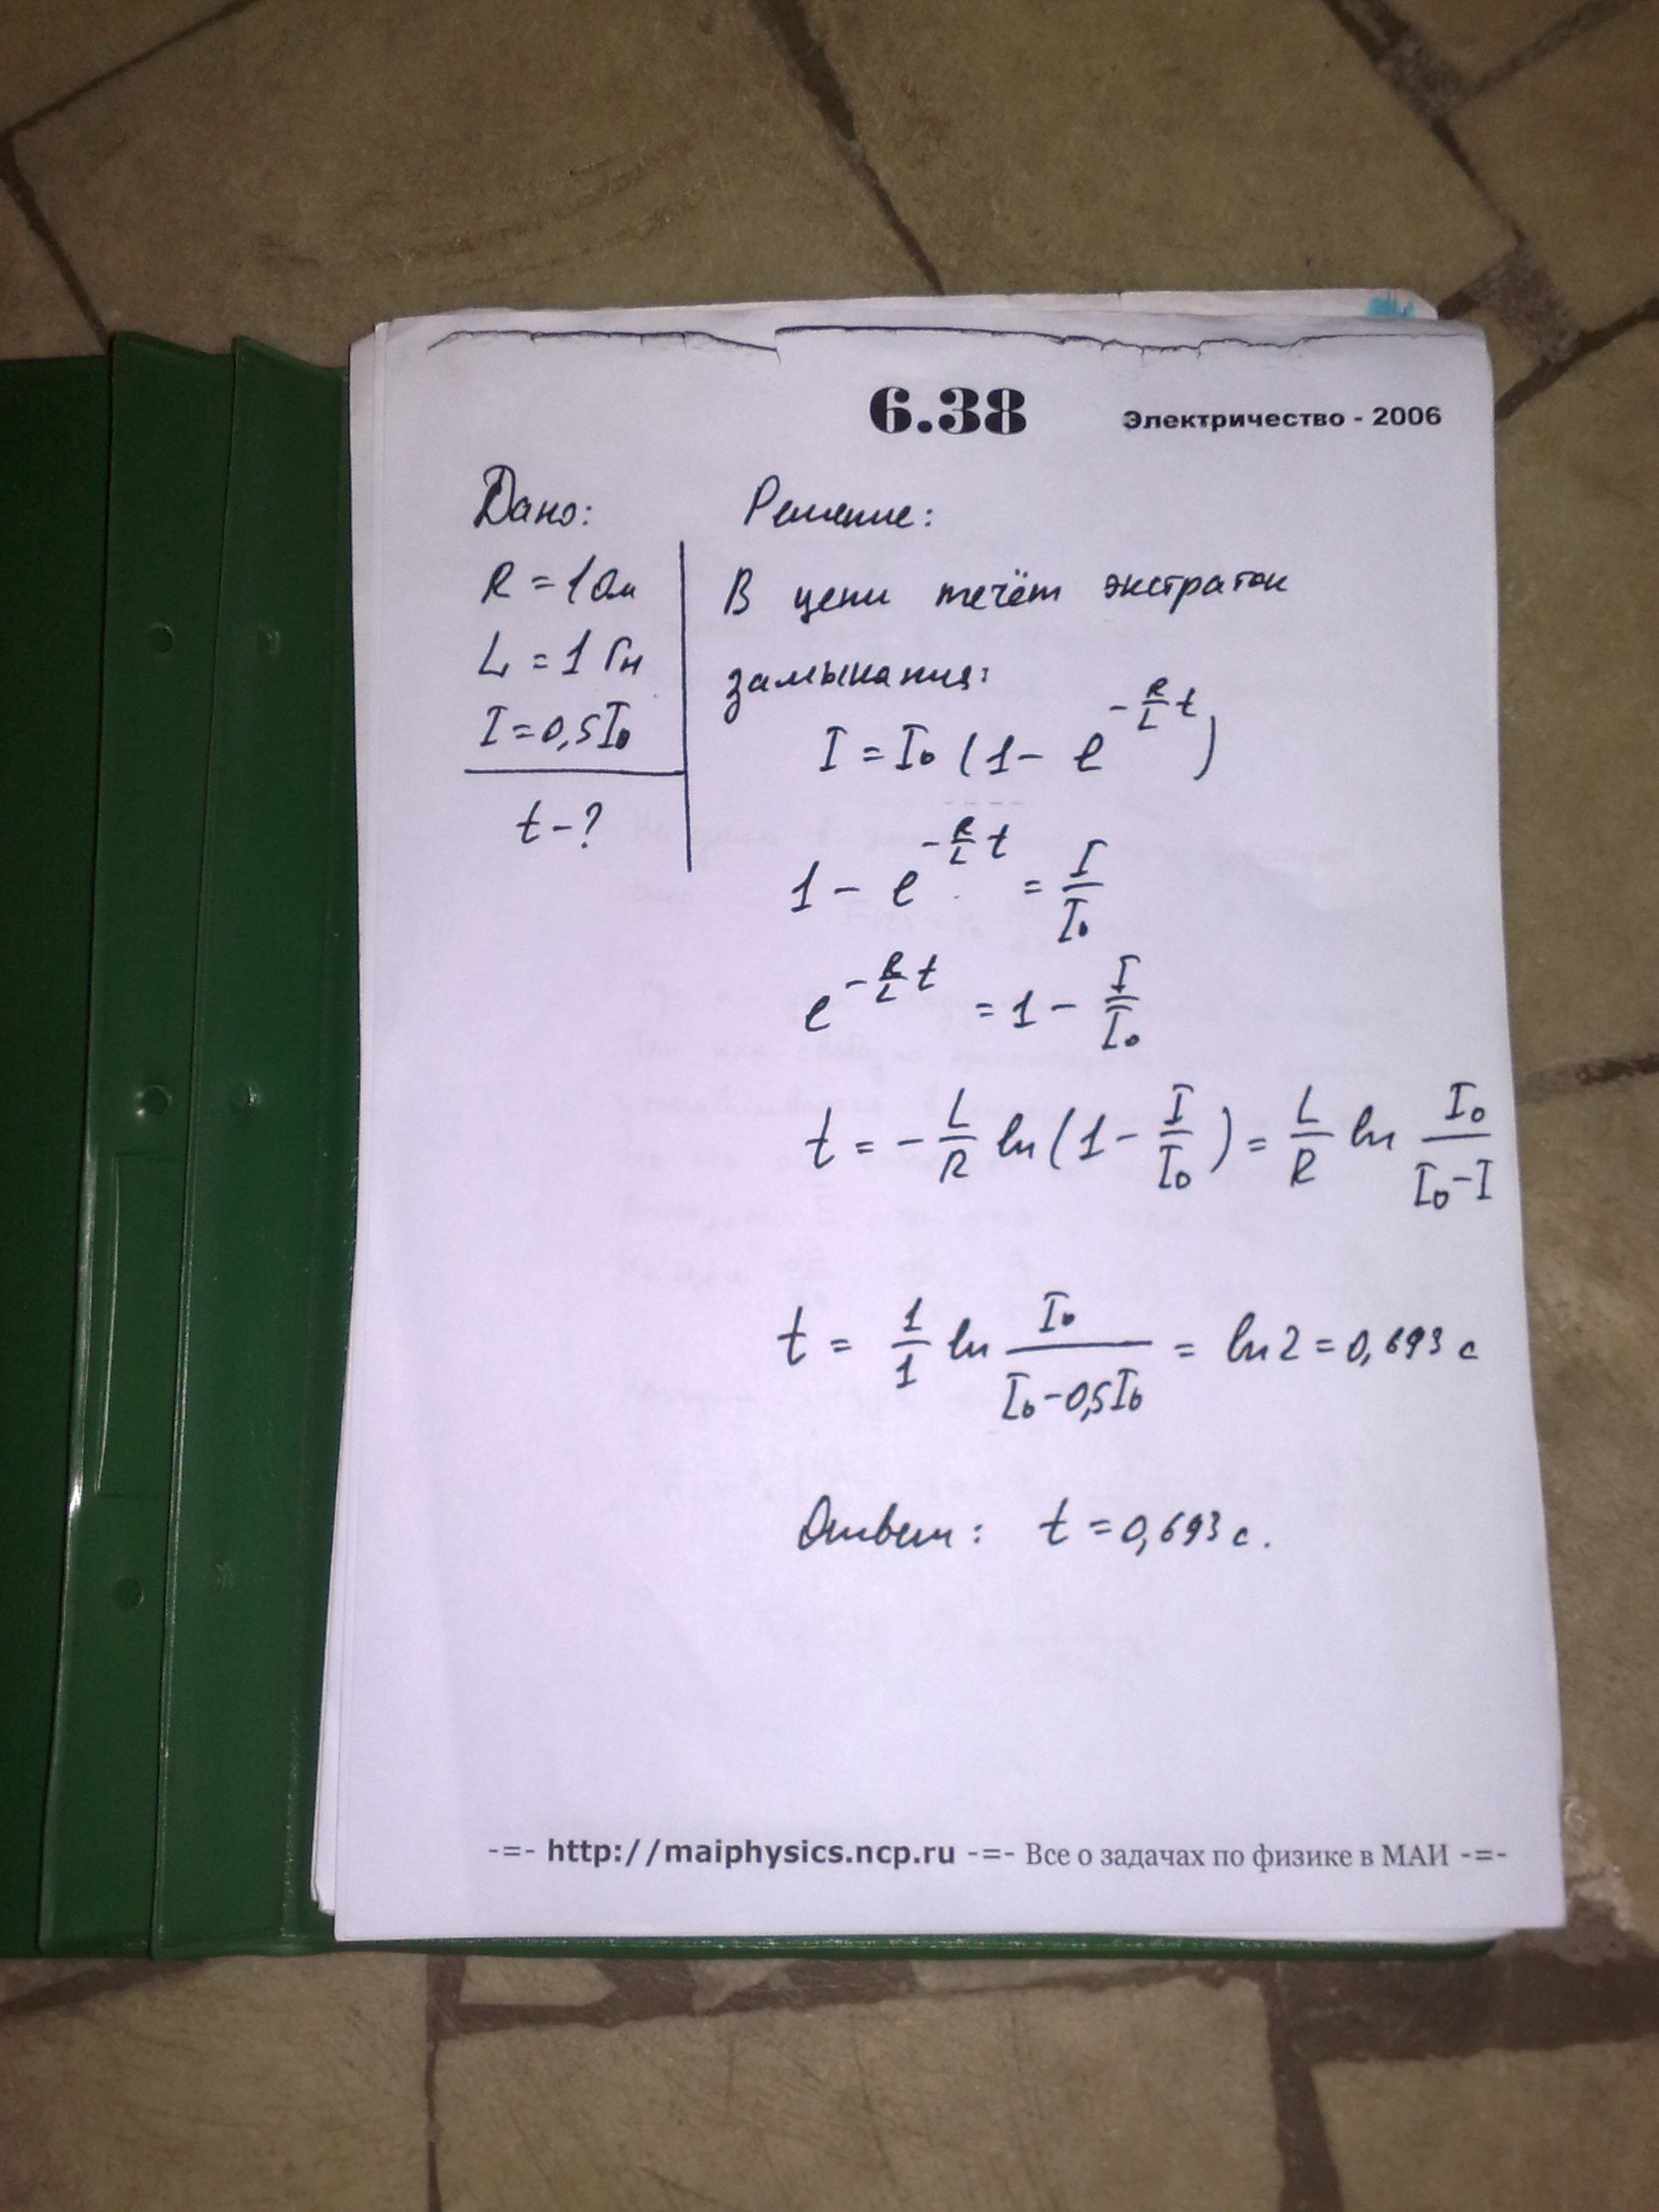 6.38 Электричество - 2006
Дано: Решение:
R = 1 Ом В цепи течёт экстраток
L = 1 Гн замыкания:
I = 0,5I₀ I = I₀ (1 - e^(-R/L t))
t - ?
1 - e^(-R/L t) = I/I₀
e^(-R/L t) = 1 - I/I₀
t = - L/R ln(1 - I/I₀) = L/R ln I₀/(I₀-I)
t = 1/1 ln I₀/(I₀-0,5I₀) = ln2 = 0,693 с
Ответ: t = 0,693 с.
-=- http://maiphysics.ncp.ru -=- Все о задачах по физике в МАИ -=-